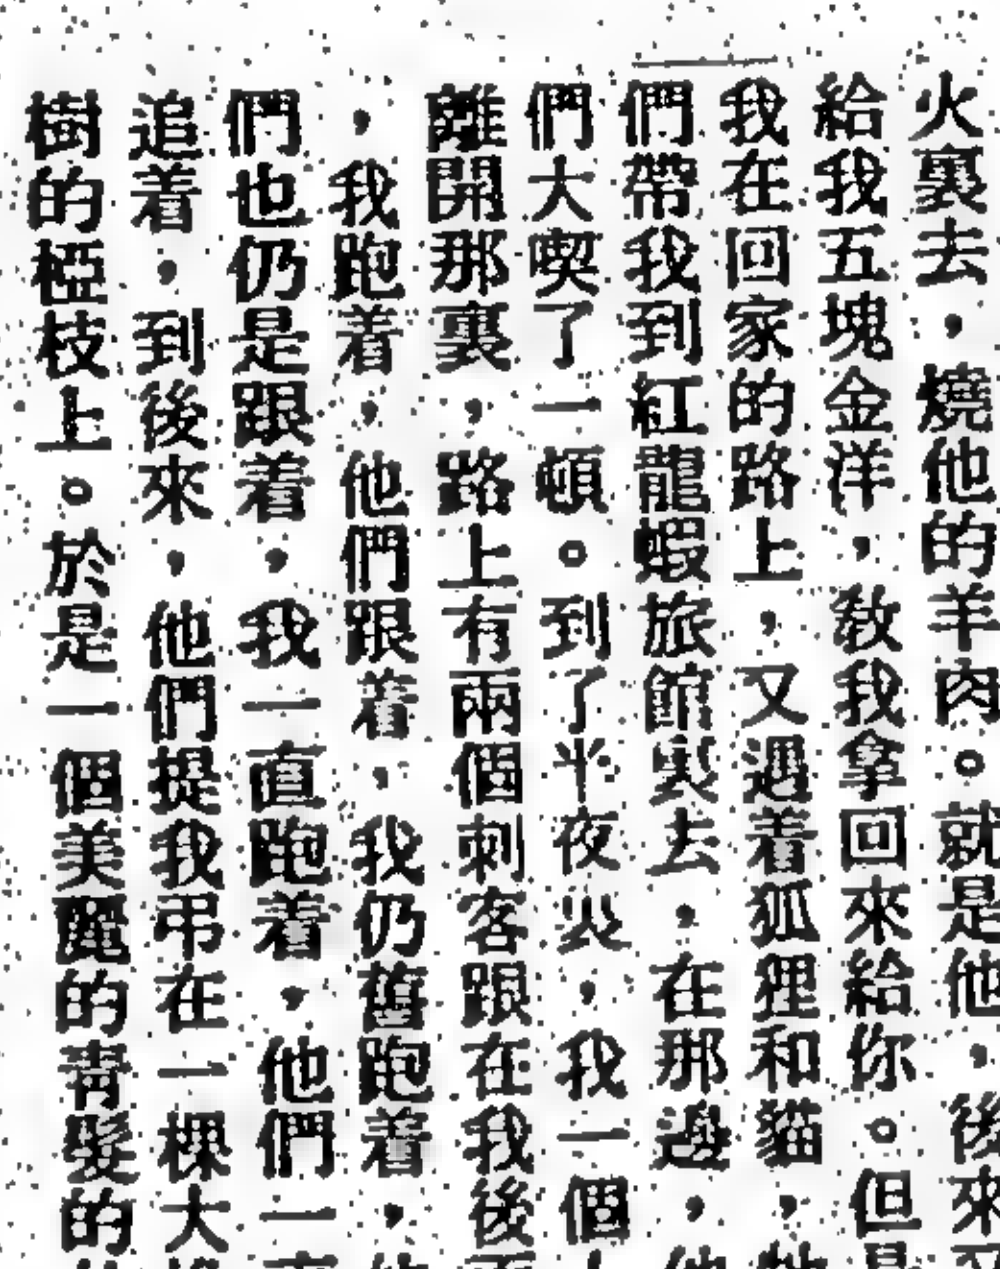 火裏去，燒他的羊肉。就是他，後來
給我五塊金洋，教我拿回來給你。但是
我在回家的路上，又遇着狐狸和貓，
們帶我到紅龍蝦旅館裏去，在那邊，他
們大喫了一頓。到了半夜，我一個
離開那裏，路上有兩個刺客跟在我後
，我跑着，他們跟着，我仍舊跑着，
們也仍是跟着，我一直跑着，他們一
追着，到後來，他們捉我弔在一棵大
樹的椏枝上。於是一個美麗的青髮的